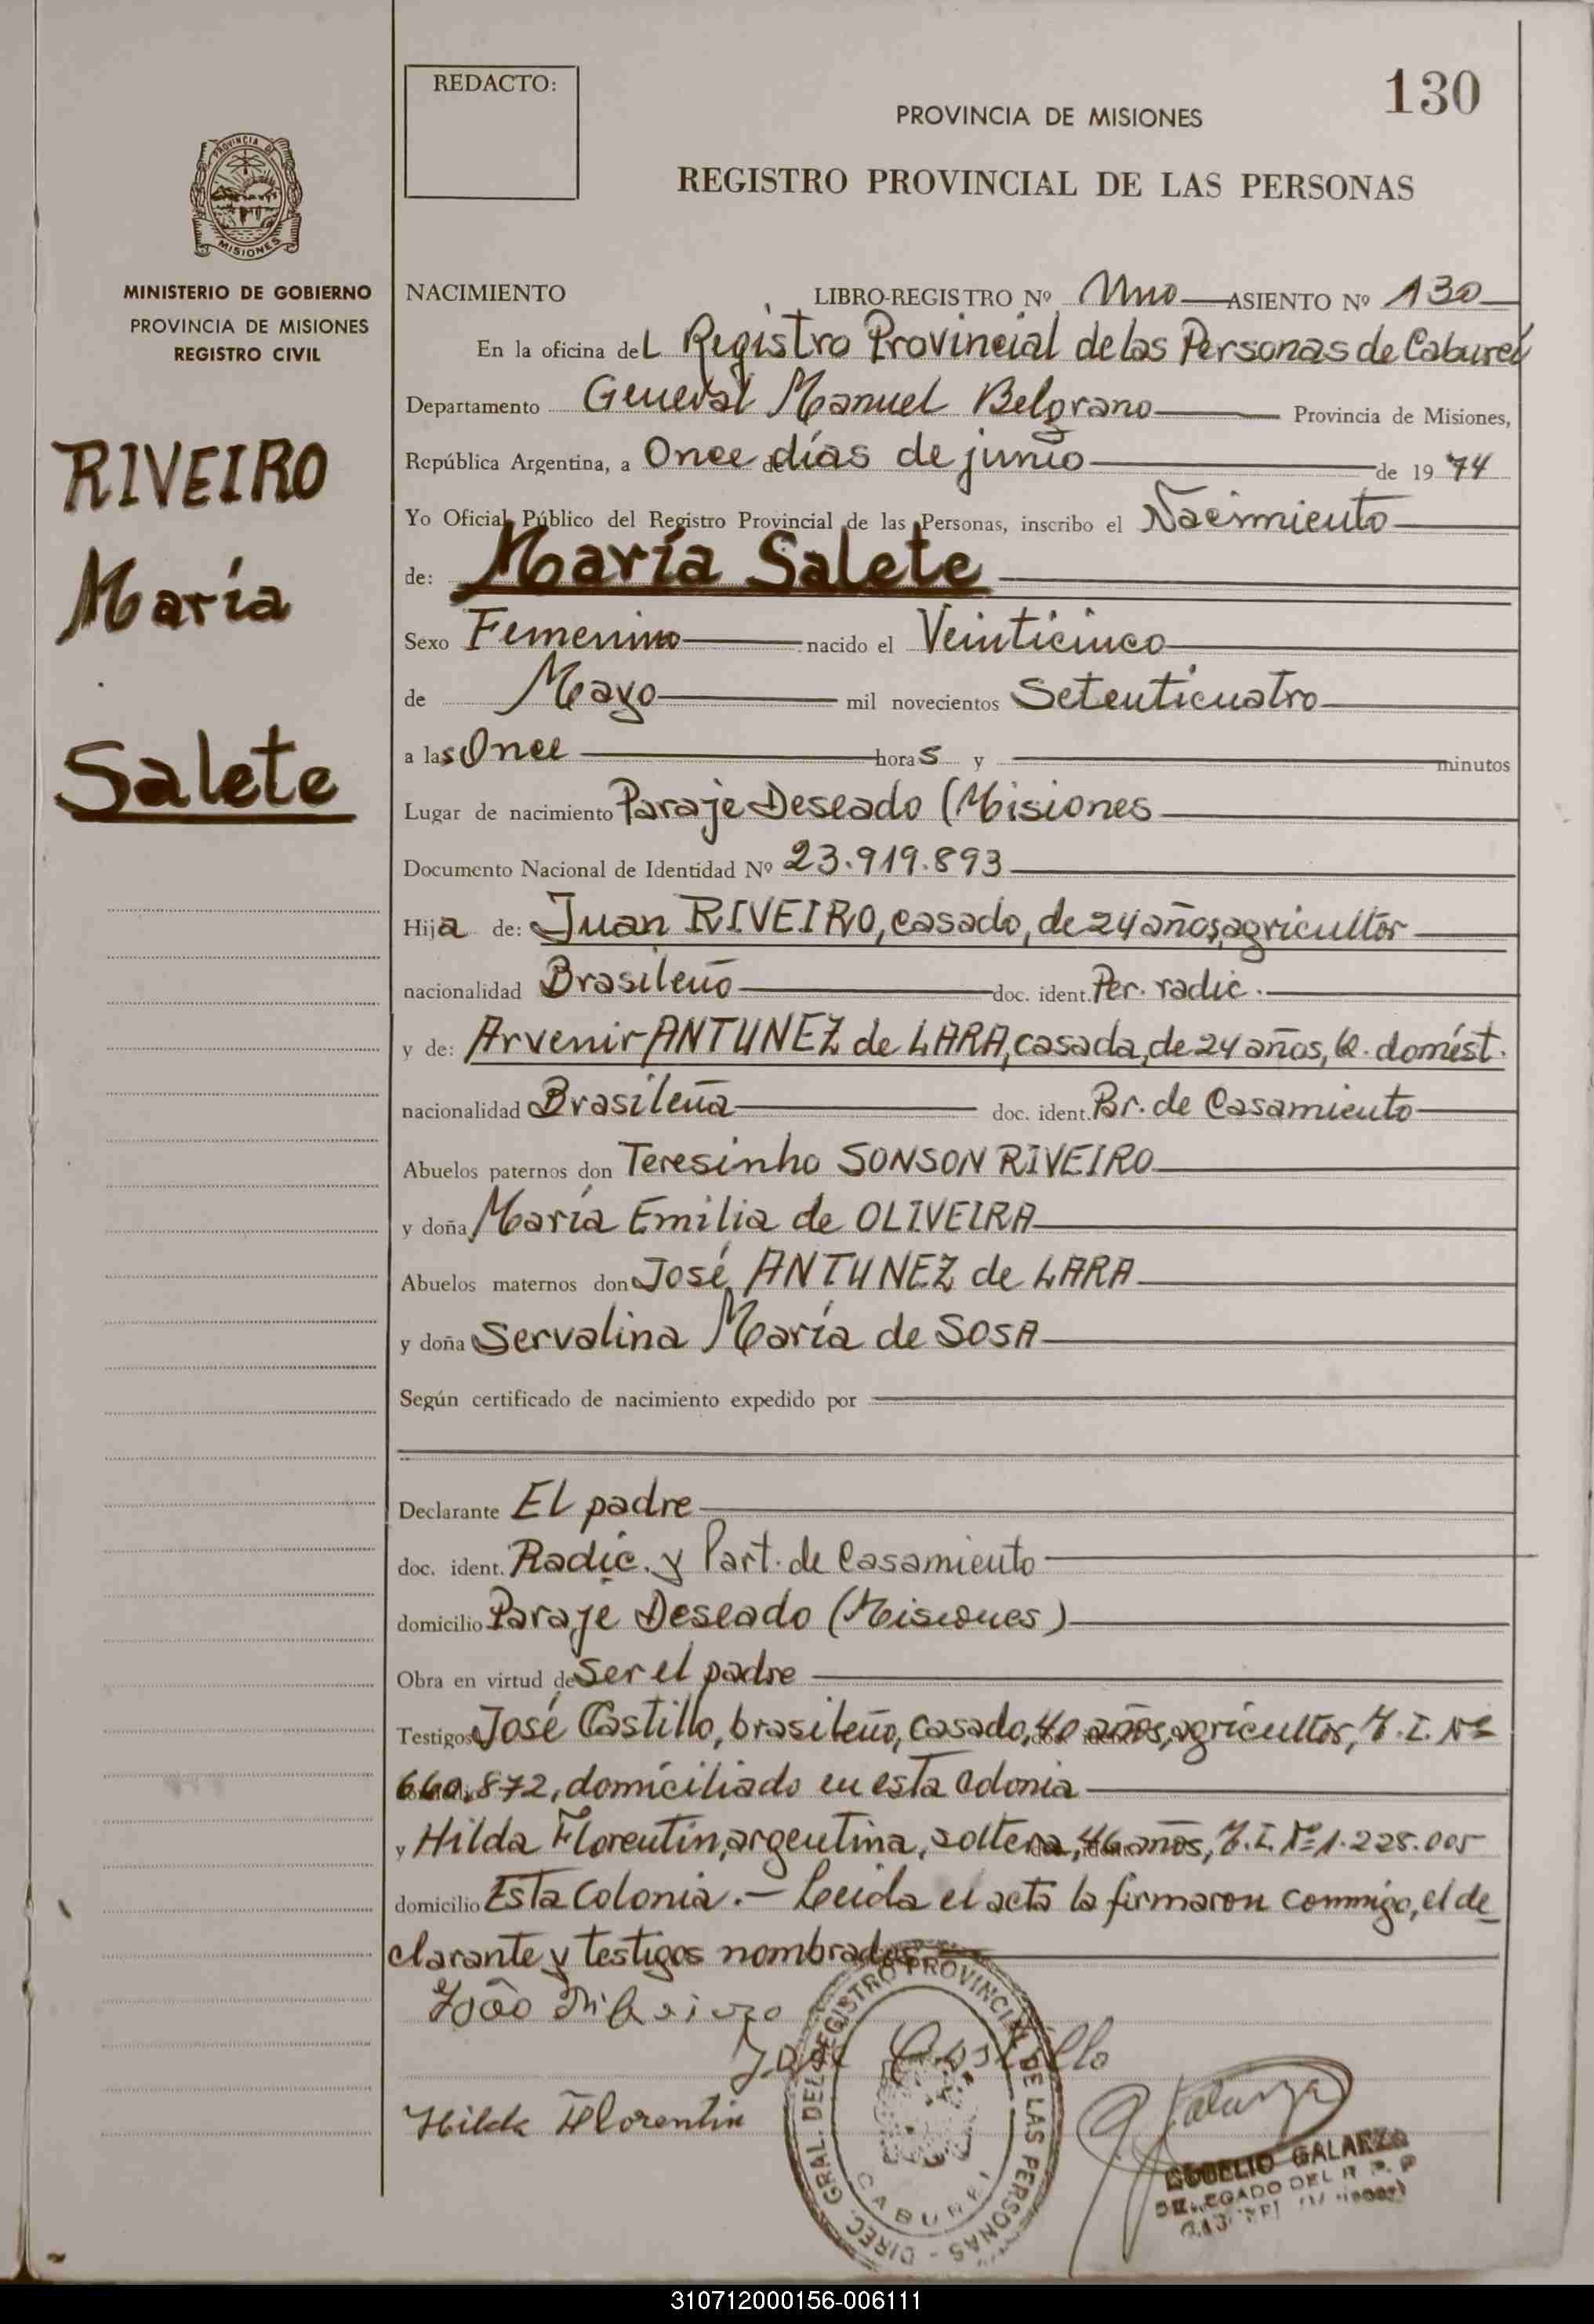 REDACTO:
130
PROVINCIA DE MISIONES
REGISTRO PROVINCIAL DE LAS PERSONAS
PROVINCIA DE
MISIONES
MINISTERIO DE GOBIERNO
PROVINCIA DE MISIONES
REGISTRO CIVIL
RIVEIRO
María
Salete
NACIMIENTO LIBRO-REGISTRO Nº Uno ASIENTO Nº 130
En la oficina del Registro Provincial de las Personas de Cabureí
Departamento General Manuel Belgrano Provincia de Misiones,
República Argentina, a Once de días de junio de 1974
Yo Oficial Público del Registro Provincial de las Personas, inscribo el Nacimiento
de: María Salete
Sexo Femenino nacido el Veinticinco
de Mayo mil novecientos Setenticuatro
a las Once horas y minutos
Lugar de nacimiento Paraje Deseado (Misiones
Documento Nacional de Identidad Nº 23.919.893
Hija de: Juan RIVEIRO, casado, de 24 años, agricultor
nacionalidad Brasileño doc. ident. Per. radic.
y de: Arvenir ANTUNEZ de LARA, casada, de 24 años, Q. domést.
nacionalidad Brasileña doc. ident. Par. de Casamiento
Abuelos paternos don Teresinho SONSON RIVEIRO
y doña María Emilia de OLIVEIRA
Abuelos maternos don José ANTUNEZ de LARA
y doña Servalina María de SOSA
Según certificado de nacimiento expedido por
Declarante El padre
doc. ident. Radic. y Part. de Casamiento
domicilio Paraje Deseado (Misiones)
Obra en virtud de Ser el padre
Testigos José Castillo, brasileño, casado, 40 años, agricultor, M.I. Nº
660.872, domiciliado en esta Colonia
y Hilda Florentin, argentina, soltera, 46 años, M.I. Nº 1.228.005
domicilio Esta Colonia.- Leida el acta la firmaron conmigo, el de
clarante y testigos nombrados
João Ribeiro
José Castillo
Hilda Florentin
DIREC. GRAL. DEL REGISTRO PROVINCIAL DE LAS PERSONAS
CABUREI
GALARZA
DELEGADO DEL R. P. P
310712000156-006111